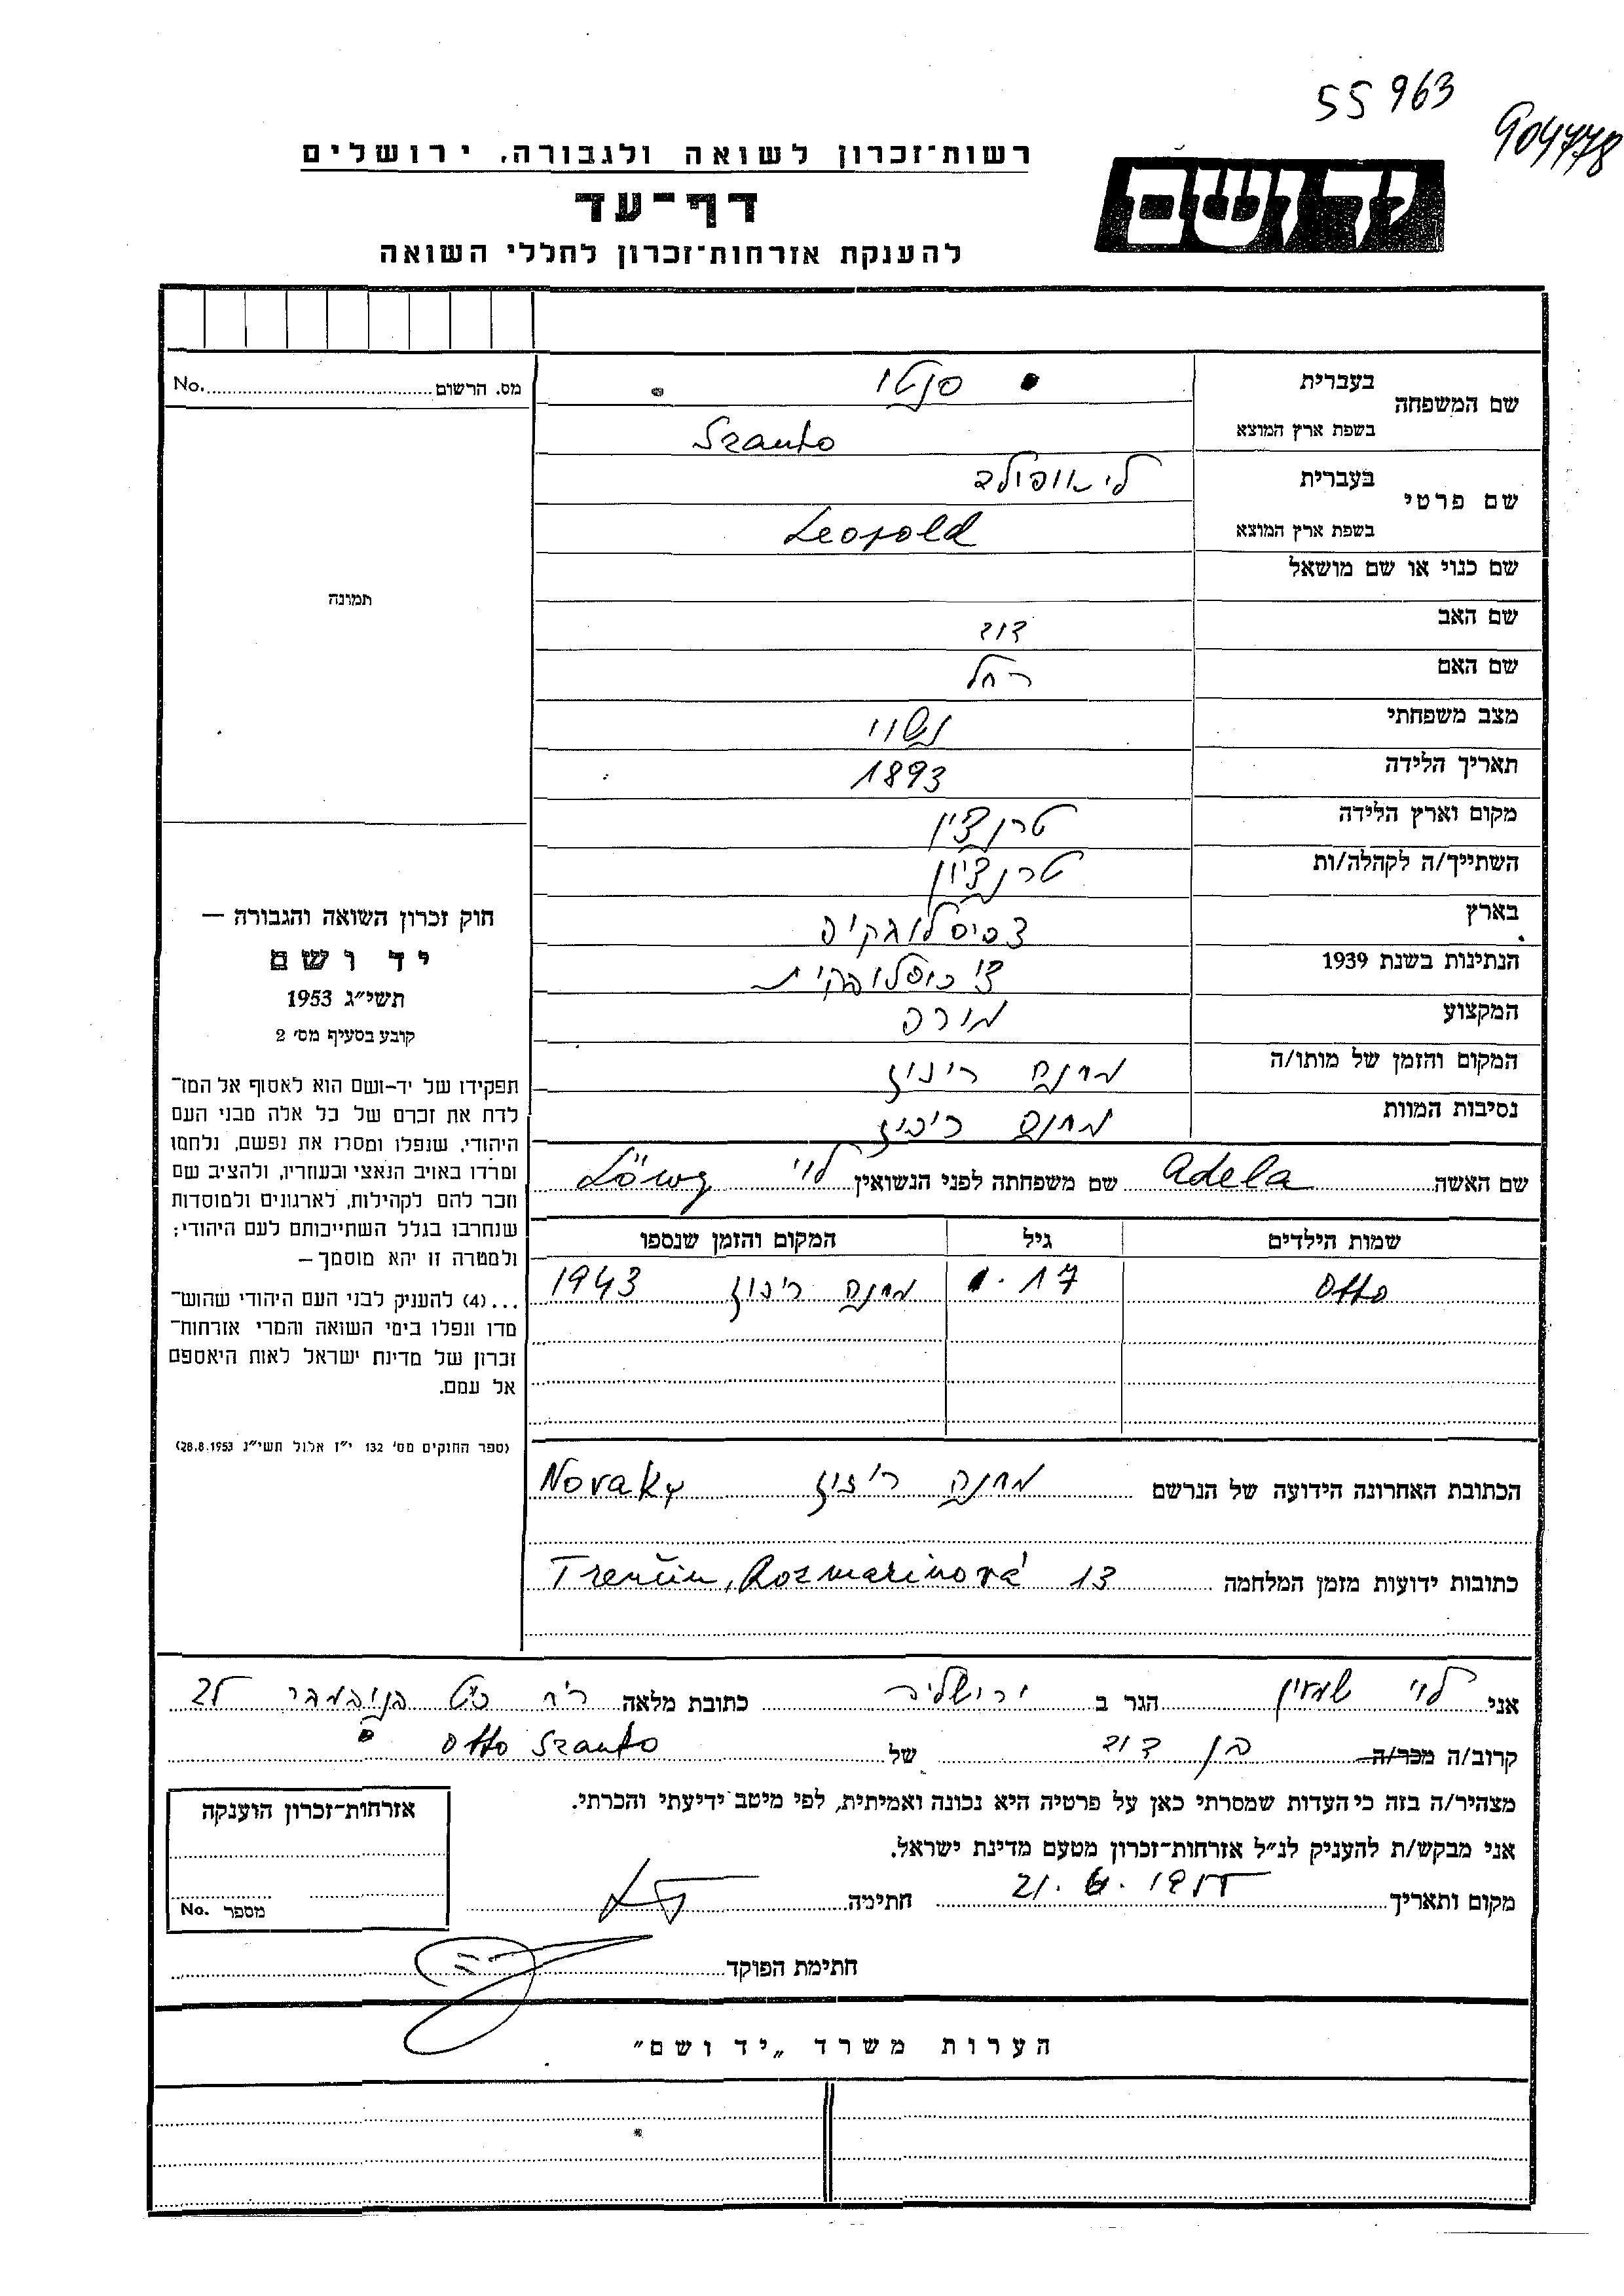 55963
904778
יד ושם
רשות־זכרון לשואה ולגבורה, ירושלים
דף־עד
להענקת אזרחות־זכרון לחללי השואה
שם המשפחה
בעברית סנטו
בשפת ארץ המוצא Szanto
שם פרטי
בעברית ליאופולד
בשפת ארץ המוצא Leopold
שם כנוי או שם מושאל
שם האב דוד
שם האם רחל
מצב משפחתי נשוי
תאריך הלידה 1893
מקום וארץ הלידה טרנצין
השתייך/ה לקהלה/ות טרנציון
בארץ
הנתינות בשנת 1939
המקצוע מורה
המקום והזמן של מותו/ה מחנה ריכוז
נסיבות המוות מחנה ריכוז
שם האשה Adela שם משפחתה לפני הנשואין לוי Löwy
שמות הילדים גיל המקום והזמן שנספו
Otto 17 מחנה ריכוז 1943
הכתובת האחרונה הידועה של הנרשם מחנה ריכוז Novaky
כתובות ידועות מזמן המלחמה Trenčin, Rozmarinová 13
מס. הרשום No.
תמונה
חוק זכרון השואה והגבורה —
יד ושם
תשי״ג 1953
קובע בסעיף מס׳ 2
תפקידו של יד-ושם הוא לאסוף אל המו־
לדת את זכרם של כל אלה מבני העם
היהודי, שנפלו ומסרו את נפשם, נלחמו
ומרדו באויב הנאצי ובעוזריו, ולהציב שם
וזכר להם לקהילות, לארגונים ולמוסדות
שנחרבו בגלל השתייכותם לעם היהודי;
ולמטרה זו יהא מוסמך —
...(4) להעניק לבני העם היהודי שהוש־
מדו ונפלו בימי השואה והמרי אזרחות־
זכרון של מדינת ישראל לאות היאספם
אל עמם.
(ספר החוקים מס׳ 132 י״ז אלול תשי״ג 28.8.1953)
אני לוי שמעון הגר ב ירושלים כתובת מלאה רח כ״ט בנובמבר
קרוב/ה מכר/ה בן דוד של Otto Szanto
מצהיר/ה בזה כי העדות שמסרתי כאן על פרטיה היא נכונה ואמיתית, לפי מיטב ידיעתי והכרתי.
אני מבקש/ת להעניק לנ״ל אזרחות־זכרון מטעם מדינת ישראל.
מקום ותאריך חתימה
חתימת הפוקד
אזרחות־זכרון הוענקה
מספר No.
הערות משרד „יד ושם״